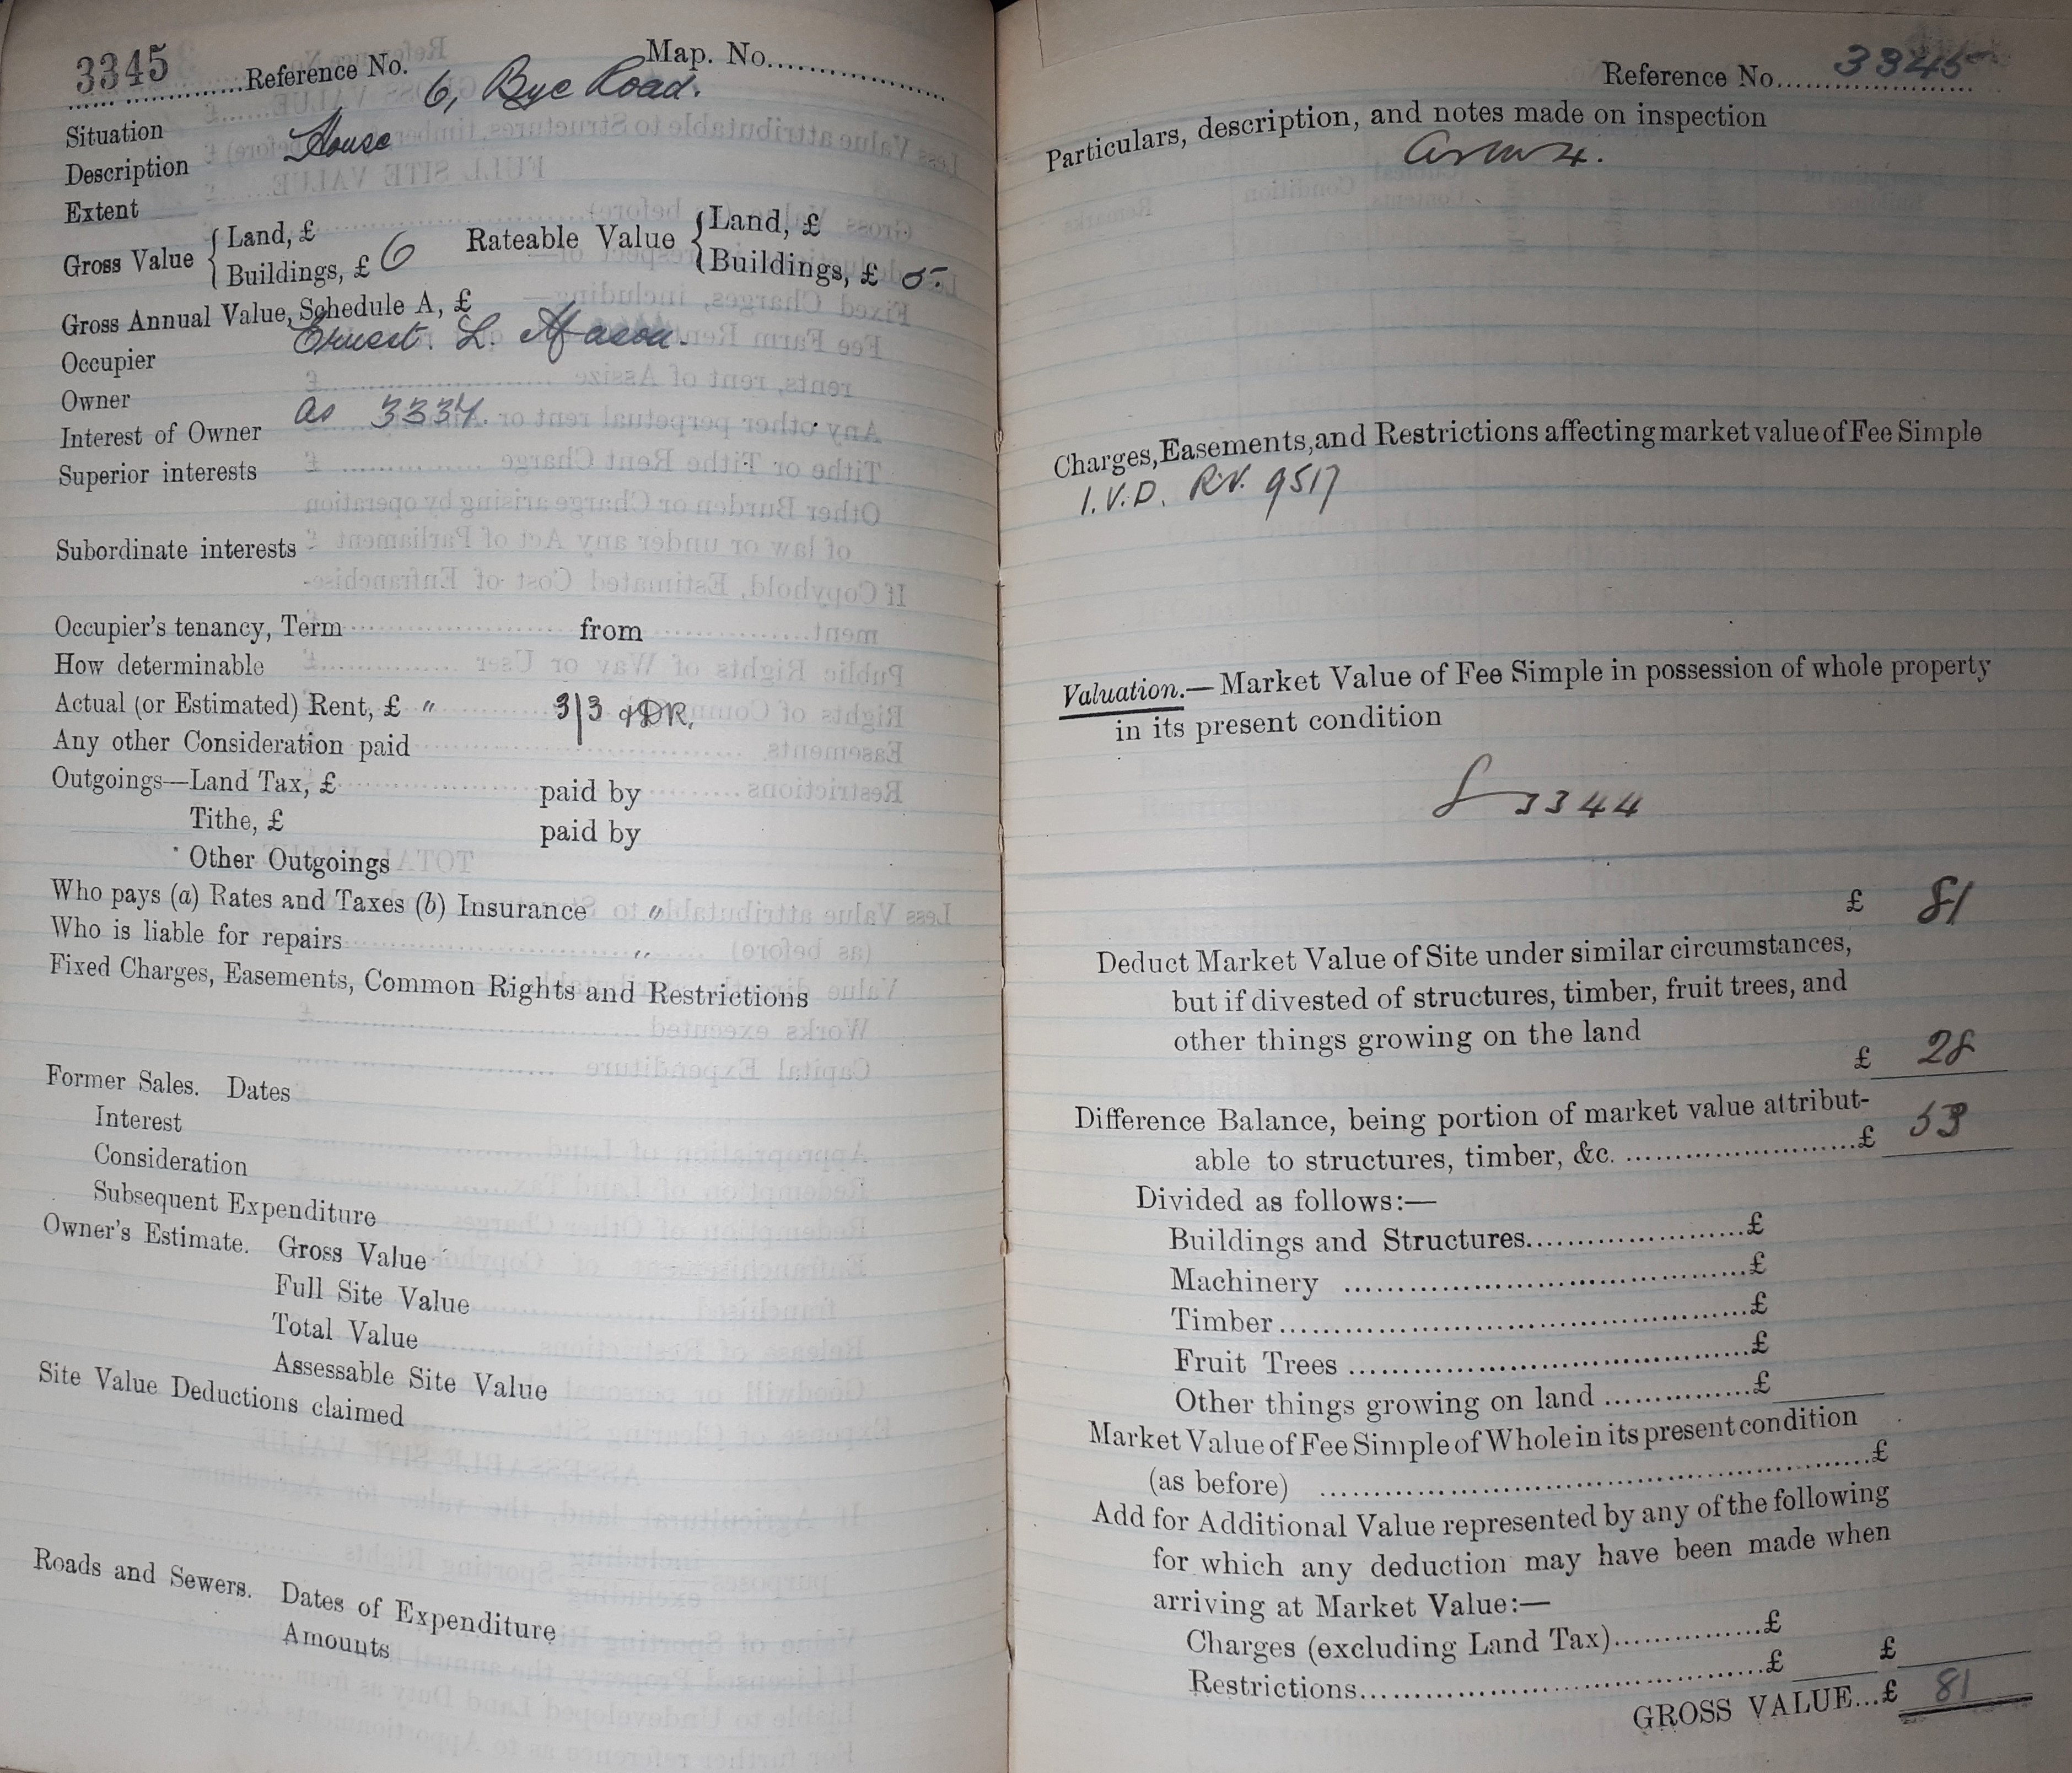 3345 Reference No. Map. No.
Situation 6, Bye Road.
Description House
Extent
Gross Value { Land, £
Buildings, £ 6
Rateable Value { Land, £
Buildings, £ 5.
Gross Annual Value, Schedule A, £
Occupier Ernest. L. Mason.
Owner
Interest of Owner as 3334.
Superior interests
Subordinate interests
Occupier's tenancy, Term from
How determinable
Actual (or Estimated) Rent, £ " 3/3 & DR.
Any other Consideration paid
Outgoings—Land Tax, £ paid by
Tithe, £ paid by
Other Outgoings
Who pays (a) Rates and Taxes (b) Insurance "
Who is liable for repairs "
Fixed Charges, Easements, Common Rights and Restrictions
Former Sales. Dates
Interest
Consideration
Subsequent Expenditure
Owner's Estimate. Gross Value
Full Site Value
Total Value
Assessable Site Value
Site Value Deductions claimed
Roads and Sewers. Dates of Expenditure
Amounts
Reference No. 3345
Particulars, description, and notes made on inspection
Charges, Easements, and Restrictions affecting market value of Fee Simple
I.V.D. RV. 9517
Valuation.—Market Value of Fee Simple in possession of whole property
in its present condition
3344
£ 81
Deduct Market Value of Site under similar circumstances,
but if divested of structures, timber, fruit trees, and
other things growing on the land
£ 28
Difference Balance, being portion of market value attribut-
able to structures, timber, &c. £ 53
Divided as follows:—
Buildings and Structures £
Machinery £
Timber £
Fruit Trees £
Other things growing on land £
Market Value of Fee Simple of Whole in its present condition
(as before) £
Add for Additional Value represented by any of the following
for which any deduction may have been made when
arriving at Market Value:—
Charges (excluding Land Tax) £
Restrictions £ £
GROSS VALUE...£ 81